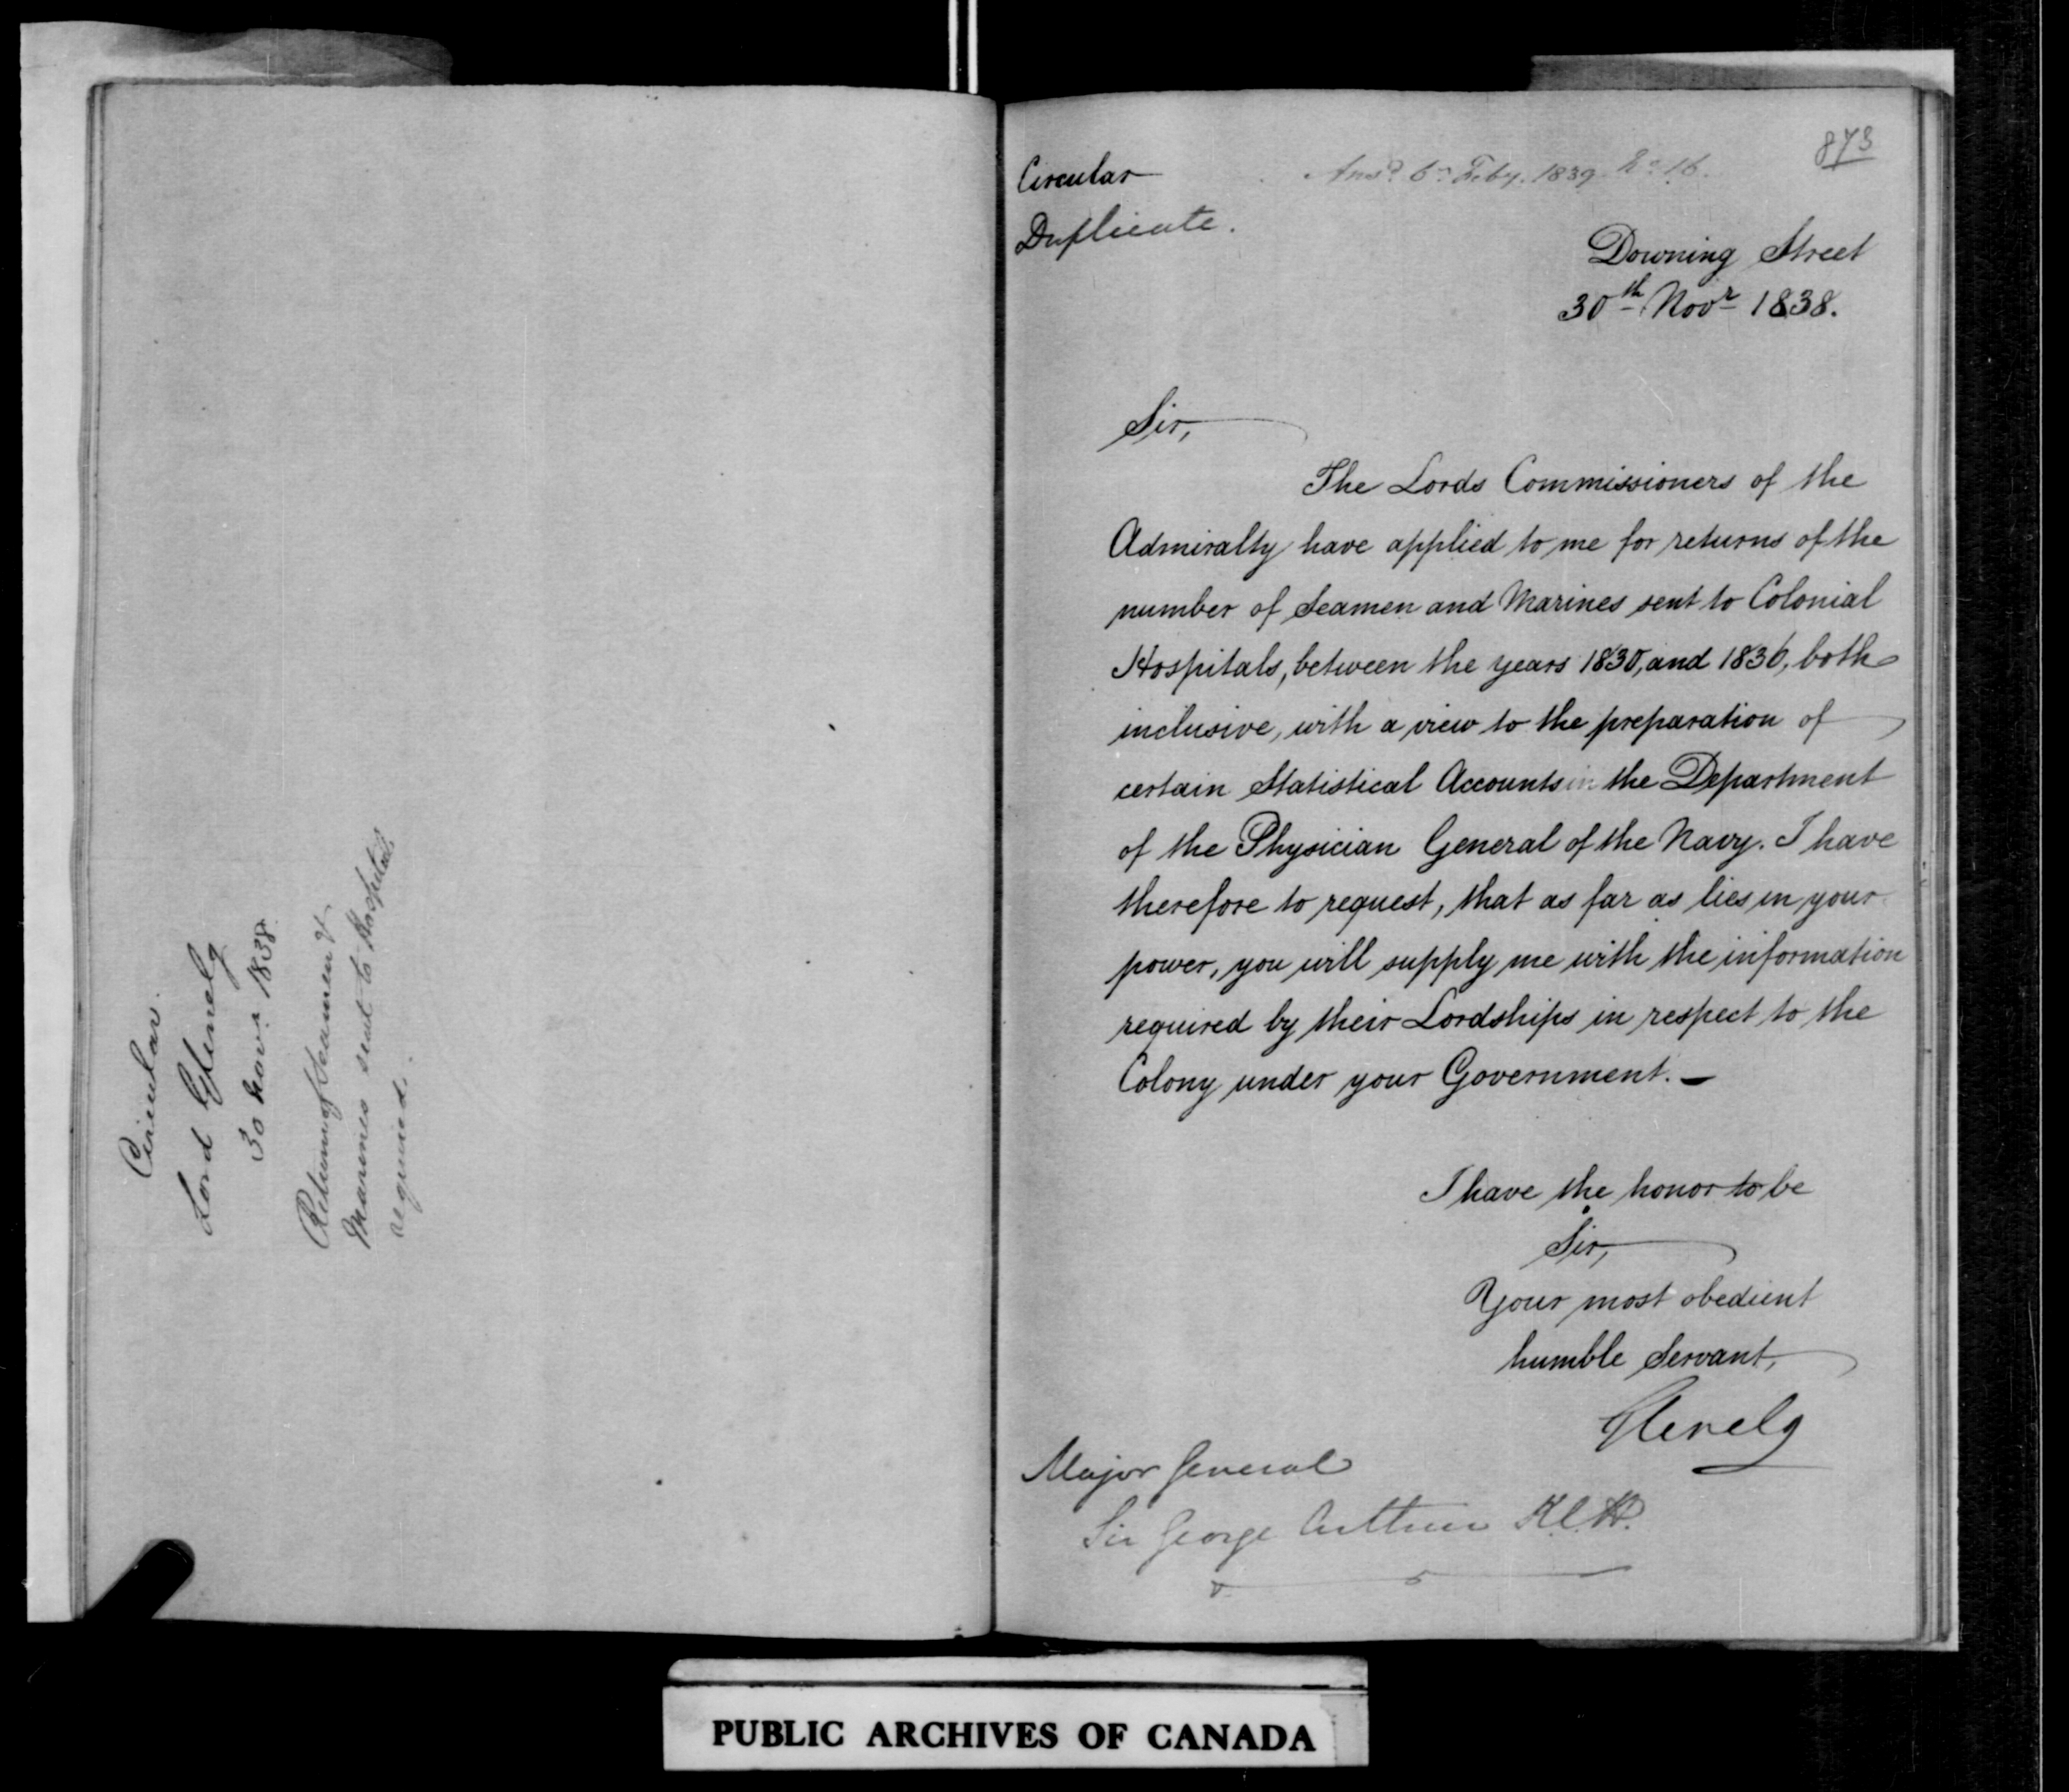 Circular.
Lord Glenelg
30 Novr. 1838.
Return of Seamen &
Marines sent to Hospitals
required.
873
Ansd. 6th Feby. 1839 No. 16.
Circular
Duplicate.
Downing Street
30th Novr 1838.
Sir,
The Lords Commissioners of the
Admiralty have applied to me for returns of the
number of Seamen and Marines sent to Colonial
Hospitals, between the years 1830, and 1836, both
inclusive, with a view to the preparation of
certain Statistical Accounts in the Department
of the Physician General of the Navy. I have
therefore to request, that as far as lies in your
power, you will supply me with the information
required by their Lordships in respect to the
Colony under your Government. —
I have the honor to be
Sir,
Your most obedient
humble Servant,
Glenelg
Major General
Sir George Arthur K.C.H.
PUBLIC ARCHIVES OF CANADA